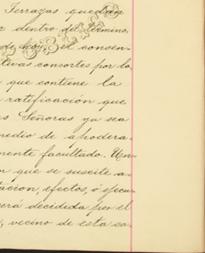 Terrazas quedan
dentro del término,
de hoy, el consen-
tivas consortes por lo
que contiene la
ratificación que
s Señoras ya sea
medio de apodera-
mente facultado. Un-
que se suscite a-
tacion, efectos, ó ejecu-
erá decidida por el
, vecino de esta ca-